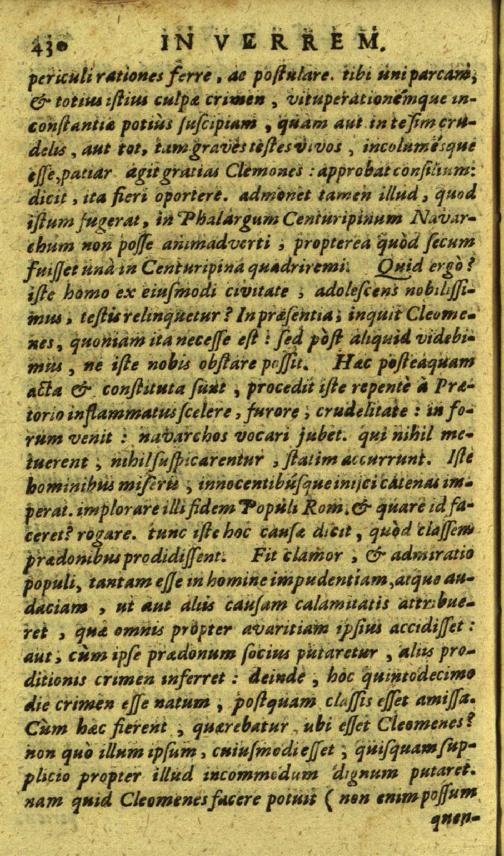 430 IN VERREM.
periculi rationes ferre, ac postulare. tibi uni parcam,
& totius istius culpæ crimen, vituperationémque in-
constantiæ potiùs suscipiam, quam aut in te sim cru-
delis, aut tot, tam graves testes vivos, incolumésque
esse, patiar agit gratias Clemones: approbat consilium:
dicit, ita fieri oportere. admonet tamen illud, quod
istum fugerat, in Phalargum Centuripinum Navar-
chum non posse animadverti, propterea quòd secum
fuisset unà in Centuripina quadriremi. Quid ergò?
iste homo ex eiusmodi civitate, adolescens nobilissi-
mus, testis relinquetur? In præsentia, inquit Cleome-
nes, quoniam ita necesse est: sed pòst aliquid videbi-
mus, ne iste nobis obstare possit. Hæc posteaquam
acta & constituta sunt, procedit iste repentè à Præ-
torio inflammatus scelere, furore, crudelitate: in fo-
rum venit: navarchos vocari jubet. qui nihil me-
tuerent, nihil suspicarentur, statim accurrunt. Iste
hominibus miseris, innocentibúsque inijci catenas im-
perat. implorare illi fidem Populi Rom. & quare id fa-
ceret? rogare. tunc iste hoc causæ dicit, quòd classem
prædonibus prodidissent. Fit clamor, & admiratio
populi, tantam esse in homine impudentiam, atque au-
daciam, ut aut aliis causam calamitatis attribue-
ret, quæ omnis propter avaritiam ipsius accidisset:
aut, cùm ipse prædonum socius putaretur, aliis pro-
ditionis crimen inferret: deinde, hoc quintodecimo
die crimen esse natum, postquam classis esset amissa.
Cùm hæc fierent, quærebatur, ubi esset Cleomenes?
non quò illum ipsum, cuiusmodi esset, quisquam sup-
plicio propter illud incommodum dignum putaret.
nam quid Cleomenes facere potuit (non enim possum
quen-